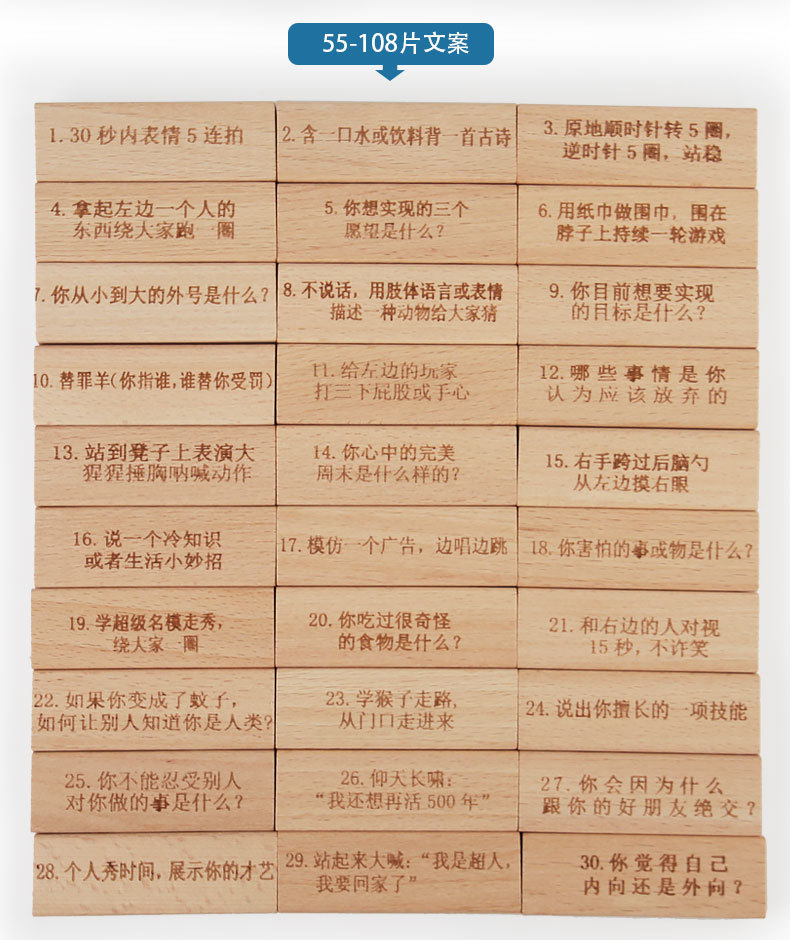 55-108片文案
1. 30秒内表情5连拍
2. 含一口水或饮料背一首古诗
3. 原地顺时针转5圈，
逆时针5圈，站稳
4. 拿起左边一个人的
东西绕大家跑一圈
5. 你想实现的三个
愿望是什么？
6. 用纸巾做围巾，围在
脖子上持续一轮游戏
7. 你从小到大的外号是什么？
8. 不说话，用肢体语言或表情
描述一种动物给大家猜
9. 你目前想要实现
的目标是什么？
10. 替罪羊(你指谁,谁替你受罚)
11. 给左边的玩家
打三下屁股或手心
12. 哪些事情是你
认为应该放弃的
13. 站到凳子上表演大
猩猩捶胸呐喊动作
14. 你心中的完美
周末是什么样的？
15. 右手跨过后脑勺
从左边摸右眼
16. 说一个冷知识
或者生活小妙招
17. 模仿一个广告，边唱边跳
18. 你害怕的事或物是什么？
19. 学超级名模走秀，
绕大家一圈
20. 你吃过很奇怪
的食物是什么？
21. 和右边的人对视
15秒，不许笑
22. 如果你变成了蚊子，
如何让别人知道你是人类?
23. 学猴子走路，
从门口走进来
24. 说出你擅长的一项技能
25. 你不能忍受别人
对你做的事是什么？
26. 仰天长啸：
“我还想再活500年”
27. 你会因为什么
跟你的好朋友绝交？
28. 个人秀时间，展示你的才艺
29. 站起来大喊：“我是超人，
我要回家了”
30. 你觉得自己
内向还是外向？